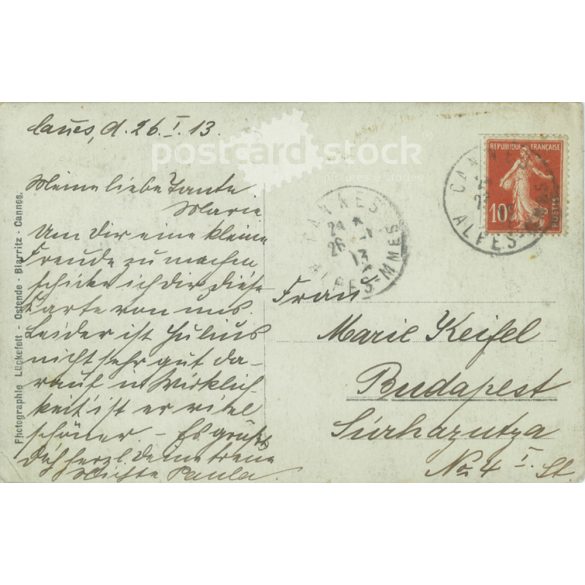 Cañes, d. 26. I. 13.
Meine liebe Tante
Marie
Um Dir eine kleine
Freude zu machen
schicke ich dir diese
Karte von uns.
Leider ist Julius
nicht sehr gut da-
rauf in Wirklich
keit ist er viel
schöner – Es grüßt
Dich herzl. deine treue
Nichte Paula.
Frau
Marie Keifel
Budapest
No 4 I. St.
Photographie Lückefett - Ostende - Biarritz - Cannes.
CANNES
24 *
26 -1
13
ALPES-MMES
CANNES
ALPES-MMES
REPUBLIQUE FRANÇAISE
10c
POSTES
postcard stock